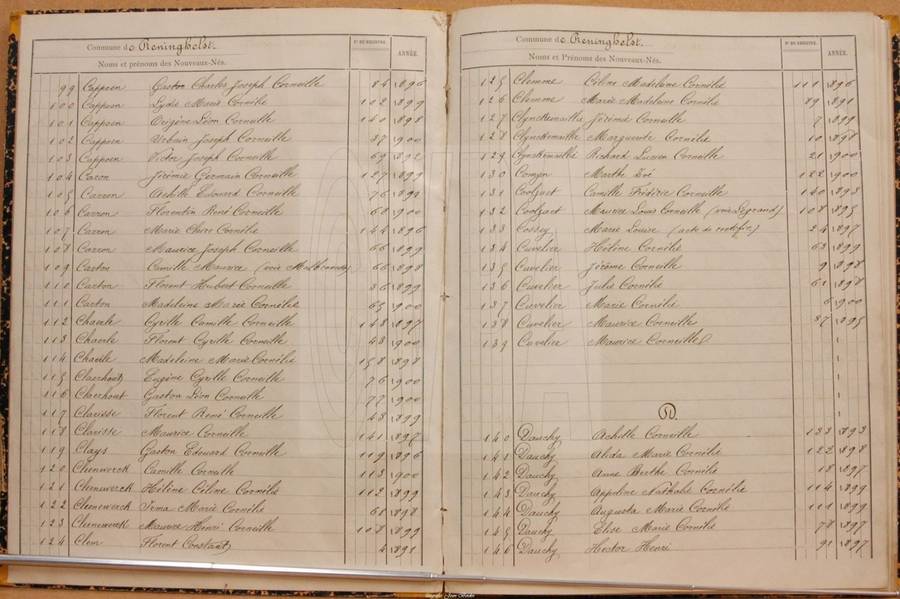 Commune de Reninghelst.
Nº DU REGISTRE.
ANNÉE.
Noms et prénoms des Nouveaux-Nés.
99 Cappoen Gaston Charles Joseph Corneille 84 1896
100 Cappoen Lydie Marie Cornélie 102 1899
101 Cappoen Origène Léon Corneille 140 1898
102 Cappoen Urbain Joseph Corneille 87 1900
103 Cappoen Victor Joseph Corneille 69 1892
104 Caron Jérémie Germain Corneille 127 1899
105 Carron Achille Edouard Corneille 76 1899
106 Carron Florentin René Corneille 60 1900
107 Carron Marie Claire Cornélie 144 1896
108 Carron Maurice Joseph Corneille 66 1899
109 Caston Camille Maurice (voir 66 1898
110 Caston Florent Hubert Corneille 36 1899
111 Caston Madeleine Marie Cornélie 65 1900
112 Chaerle Cyrille Camille Corneille 148 1897
113 Chaerle Florent Cyrille Corneille 48 1900
114 Chaerle Madeleine Marie Cornélie 158 1898
115 Claerhout Eugène Cyrille Corneille 76 1900
116 Claerhout Gaston Léon Corneille 77 1900
117 Clarisse Florent René Corneille 48 1899
118 Clarisse Maurice Corneille 141 1897
119 Clays Gaston Edouard Corneille 119 1896
120 Cleenwerck Camille Corneille 113 1900
121 Cleenewerck Hélène Céline Cornélie 112 1899
122 Cleenewerck Irma Marie Cornélie 61 1898
123 Cleenewerck Maurice Henri Corneille 108 1899
124 Clem Florent Constant 4 1891
Commune de Reninghelst.
Nº DU REGISTRE.
ANNÉE.
Noms et Prénoms des Nouveaux-Nés.
125 Clemme Céline Madeleine Cornélie 111 1896
126 Clemme Marie Madeleine Cornélie 89 1891
127 Clynckemaillie Jérémie Corneille 7 1899
128 Clynckemaille Marguerite Cornélie 10 1898
129 Clynckemaillie Richard Lucien Corneille 21 1900
130 Marthe Eve 122 1900
131 Camille Frédéric Corneille 140 1893
132 Maurice Louis Corneille (voir Legrand) 108 1895
133 Cossey Marie Louise (acte de rectific.) 24 1897
134 Cuvelier Hélène Cornélie 63 1899
135 Cuvelier Jérôme Corneille 9 1898
136 Cuvelier Julie Cornélie 61 1898
137 Cuvelier Marie Cornélie 6 1900
138 Cuvelier Maurice Corneille 87 1895
139 Cuvelier Maurice Corneille
D
140 Dauchy Achille Corneille 133 1893
141 Dauchy Alida Marie Cornélie 122 1898
142 Dauchy Anne Berthe Cornélie 18 1897
143 Dauchy Appoline Nathalie Cornélie 114 1899
144 Dauchy Augusta Marie Cornélie 111 1899
145 Dauchy Elise Marie Cornélie 78 1897
146 Dauchy Hector Henri 91 1897